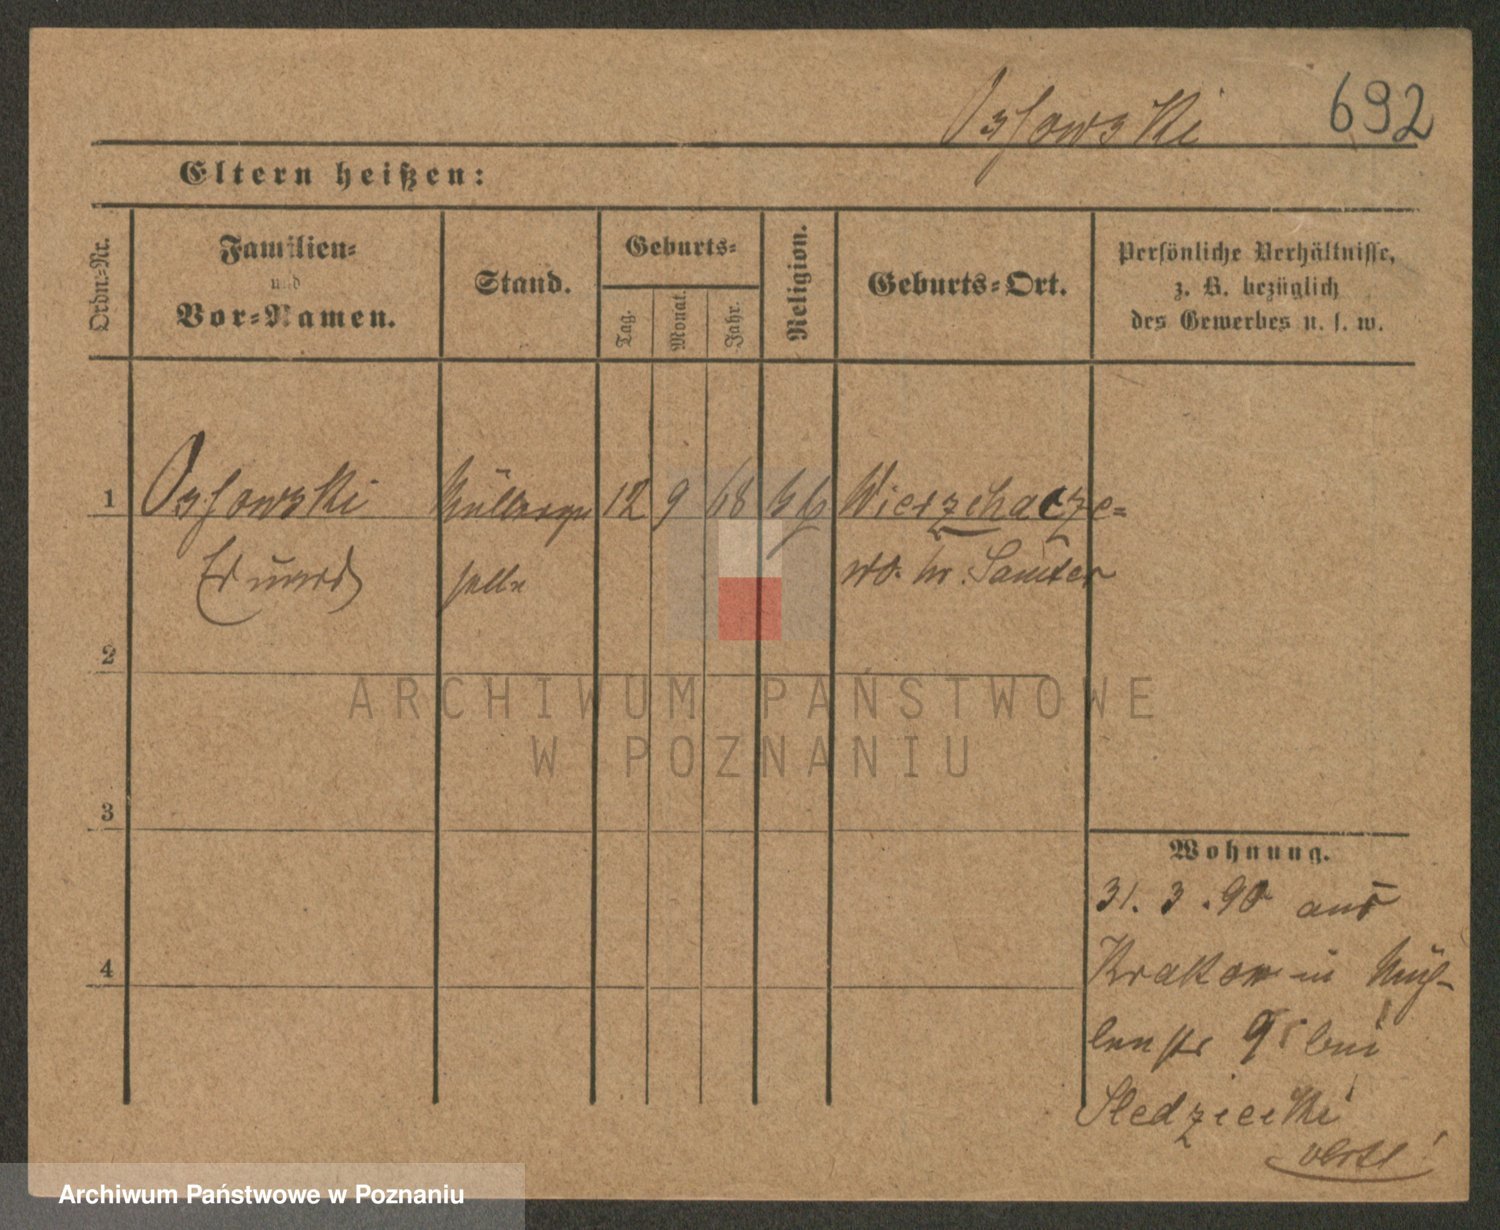 Osſowski 692
Eltern heißen:
Ordn.-Nr.
Familien-
und
Vor-Namen.
Stand.
Geburts-
Tag.
Monat.
Jahr.
Religion.
Geburts-Ort.
Persönliche Verhältnisse,
z. B. bezüglich
des Gewerbes u. s. w.
1 Osſowski Müllerge 12 9 68 Wierzchacze-
Eduard selle wo. Kr. Samter
2
3
4
Wohnung.
31. 3. 90 aus
Krakow in Müh-
lenstr 9 bei
Sledziecki
ARCHIWUM PAŃSTWOWE
W POZNANIU
Archiwum Państwowe w Poznaniu